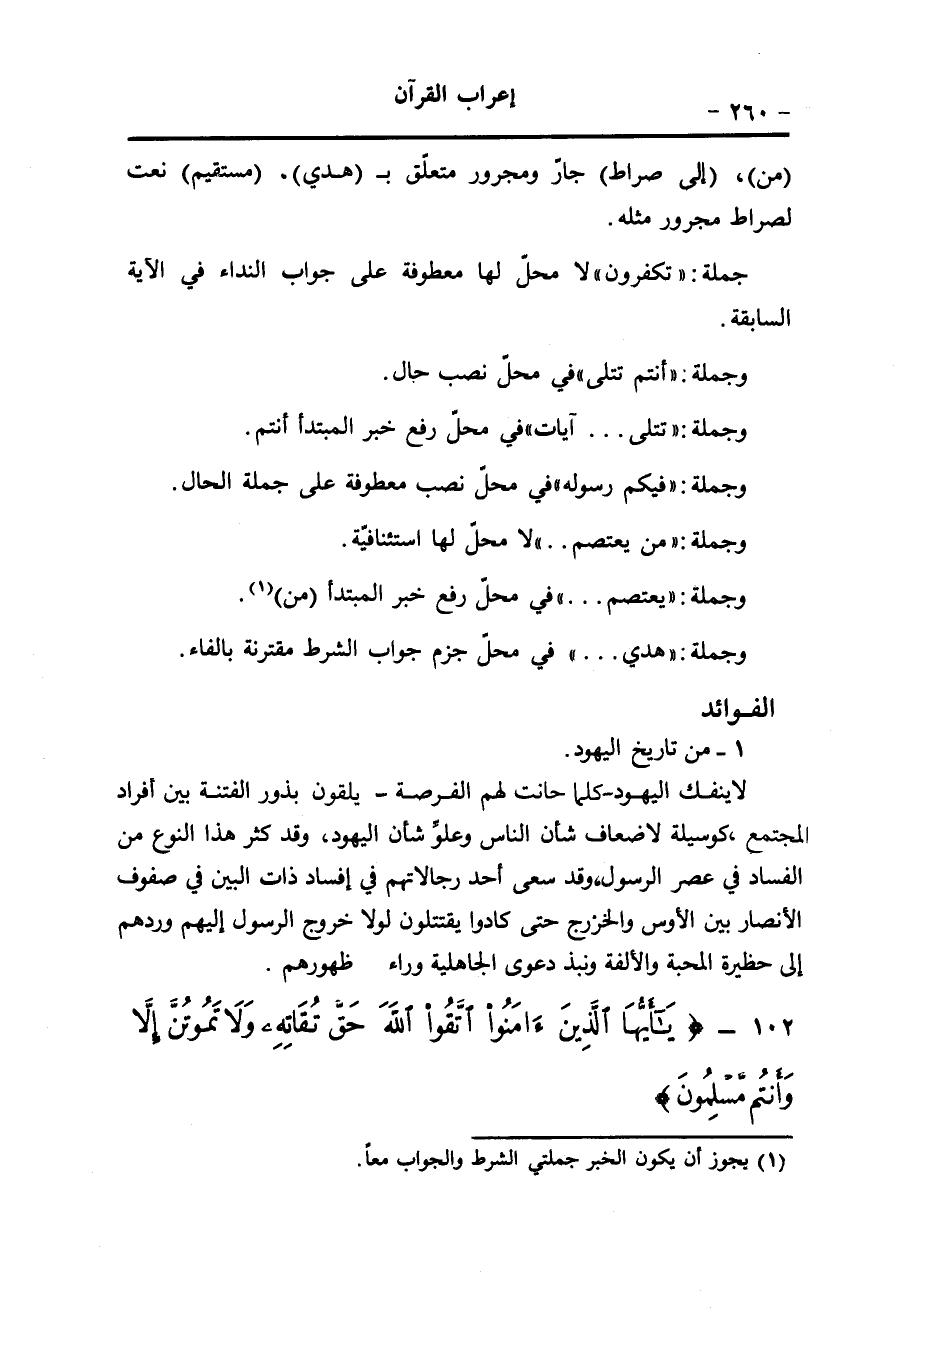 إعراب القرآن
- ٢٦٠ -
(من)، (إلى صراط) جارّ ومجرور متعلّق بـ (هـدي). (مستقيم) نعت
لصراط مجرور مثله.
جملة: «تكفرون» لا محلّ لها معطوفة على جواب النداء في الآية
السابقة.
وجملة: «أنتم تتلى» في محلّ نصب حال.
وجملة: «تتلى... آيات» في محلّ رفع خبر المبتدأ أنتم.
وجملة: «فيكم رسوله» في محلّ نصب معطوفة على جملة الحال.
وجملة: «من يعتصم..» لا محلّ لها استئنافيّة.
وجملة: «يعتصم...» في محلّ رفع خبر المبتدأ (من)(١).
وجملة: «هدي...» في محلّ جزم جواب الشرط مقترنة بالفاء.
الفـوائد
١ - من تاريخ اليهود.
لاينفـك اليهـود-كلما حانت لهم الفـرصـة - يلقون بذور الفتنـة بين أفراد
المجتمع ،كوسيلة لاضعاف شأن الناس وعلوِّ شأن اليهود، وقد كثر هذا النوع من
الفساد في عصر الرسول،وقد سعى أحد رجالاتهم في إفساد ذات البين في صفوف
الأنصار بين الأوس والخزرج حتى كادوا يقتتلون لولا خروج الرسول إليهم وردهم
إلى حظيرة المحبة والألفة ونبذ دعوى الجاهلية وراء ظهورهم .
١٠٢ - ﴿ يَـٰٓأَيُّهَا ٱلَّذِينَ ءَامَنُوا۟ ٱتَّقُوا۟ ٱللَّهَ حَقَّ تُقَاتِهِۦ وَلَا تَمُوتُنَّ إِلَّا
وَأَنتُم مُّسْلِمُونَ ﴾
(١) يجوز أن يكون الخبر جملتي الشرط والجواب معاً.